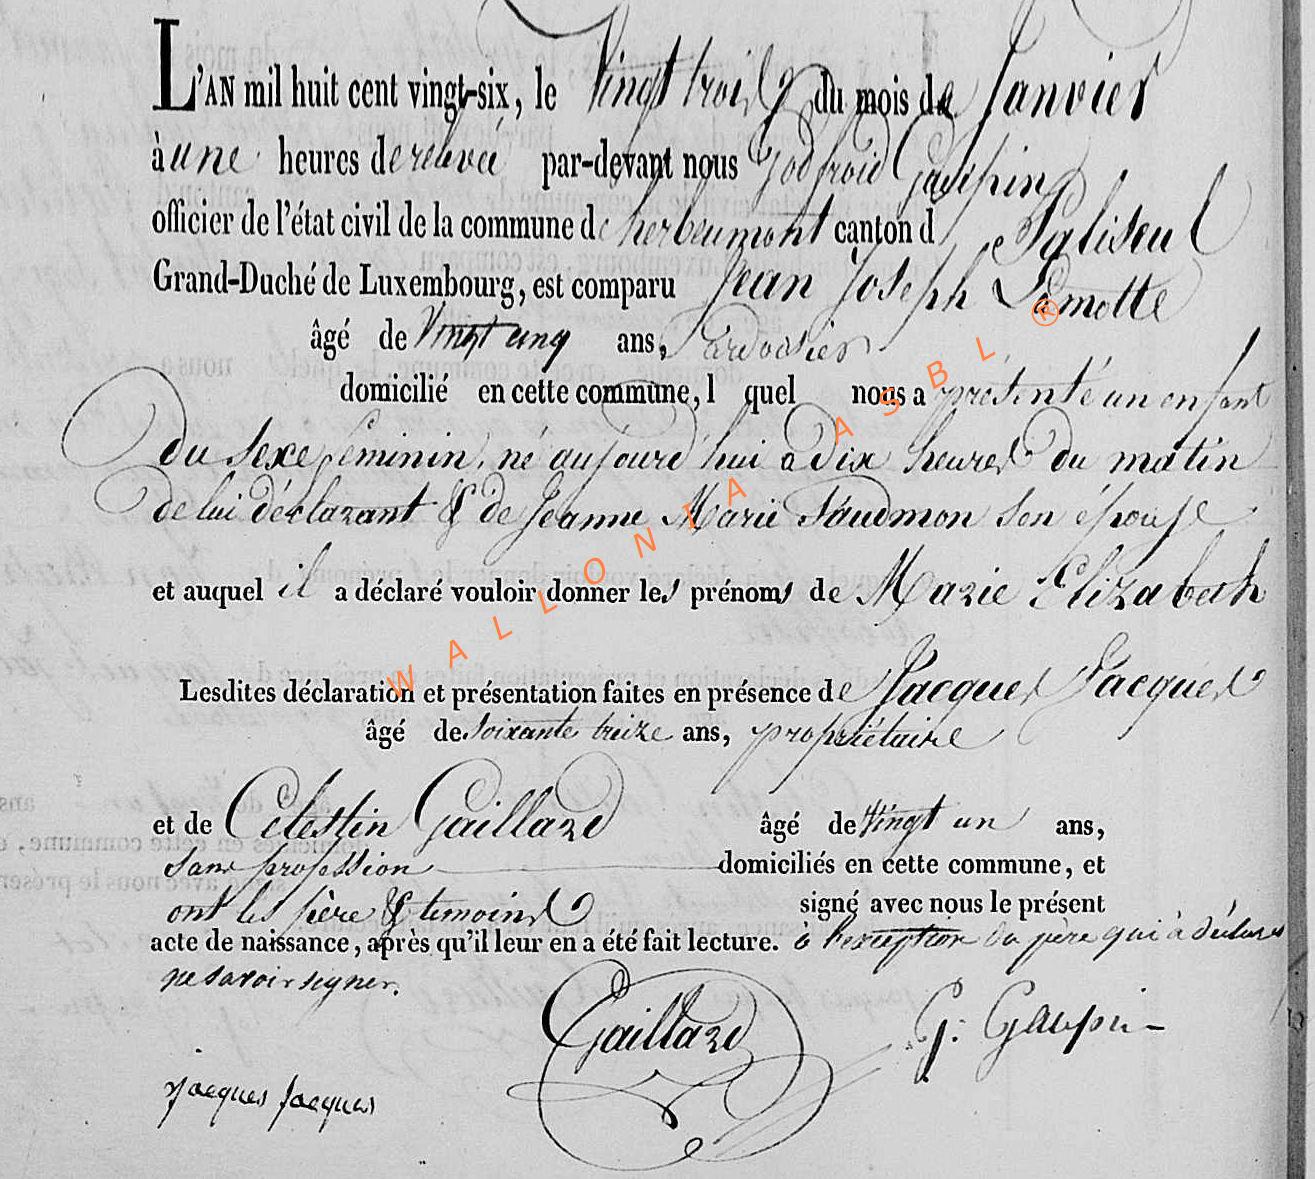 L'AN mil huit cent vingt-six, le Vingt trois du mois de Janvier
à une heures de relevée par-devant nous Godfroid Gaspin
officier de l'état civil de la commune de herbeumont canton de Paliseul
Grand-Duché de Luxembourg, est comparu Jean Joseph Lamotte
âgé de Vingt cinq ans, ardoisier
domicilié en cette commune, l quel nous a présenté un enfant
du sexe féminin, né aujourd'hui à dix heures du matin
de lui déclarant & de Jeanne Marie Naudmon son épouse
et auquel il a déclaré vouloir donner les prénoms de Marie Elizabeth
Lesdites déclaration et présentation faites en présence de Jacques Jacques
âgé de soixante treize ans, propriétaire
et de Celestin Gaillard âgé de Vingt un ans,
sans profession domiciliés en cette commune, et
ont les père & temoins signé avec nous le présent
acte de naissance, après qu'il leur en a été fait lecture. à l'exception du père qui à déclaré
ne savoir signer.
Gaillard G: Gaspin
Jacques Jacques
WALLONIA ASBL ®